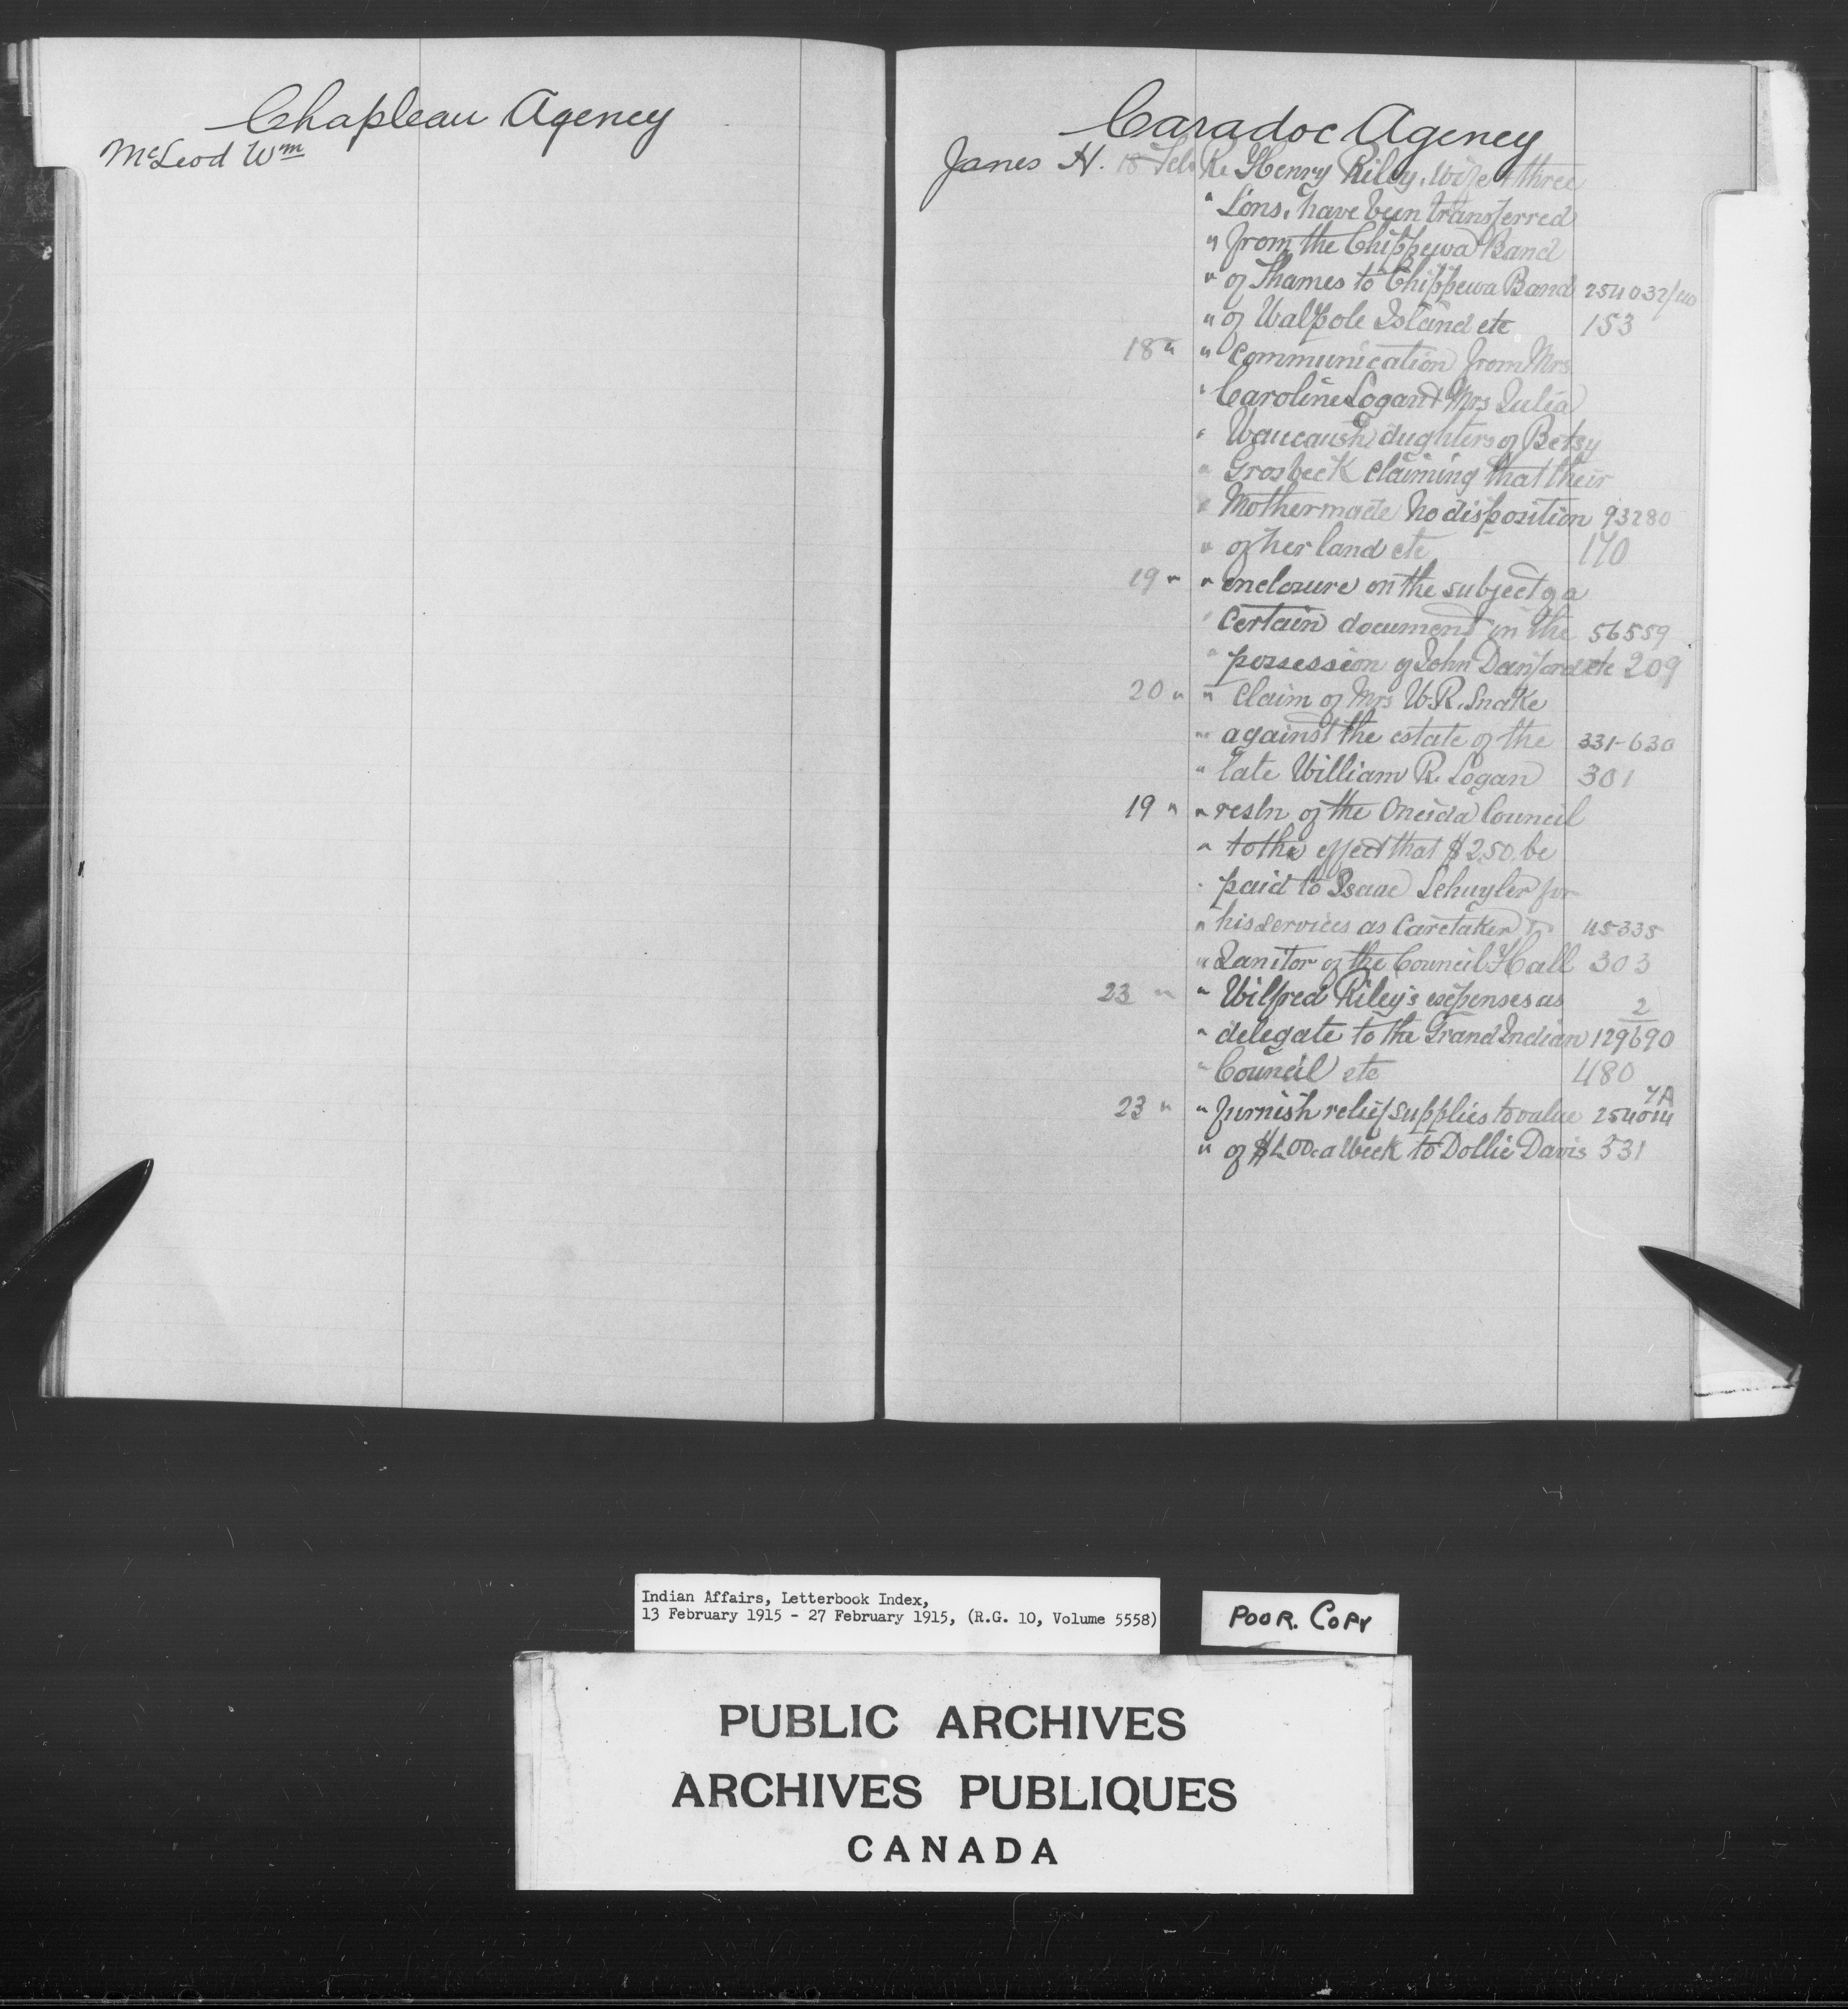 Chapleau Agency
McLeod Wm
Caradoc Agency
Janes H. 18 Feb Re Henry Riley, wife & three
" Sons, have been transferred
" from the Chippewa Band
" of Thames to Chippewa Band 254032/40
" of Walpole Island etc 153
18 " " Communication from Mrs
" Caroline Logan & Mrs Julia
" Waucaush dughters of Betsy
" Grosbeck claiming that their
" Mother made no disposition 93280
" of her land etc 170
19 " " enclosure on the subject of a
" Certain document in the 56559
" possession of John Danford etc 209
20 " " Claim of Mrs W.R. Snake
" against the estate of the 331-630
" late William R. Logan 301
19 " " resln of the Oneida Council
" to the effect that $2.50 be
" paid to Isaac Schuyler for
" his services as Caretaker & 45335
" Janitor of the Council Hall 303
23 " " Wilfred Riley's expenses as 2
" delegate to the Grand Indian 129690
" Council etc 480
23 " " furnish relief supplies to value 254014 7A
" of $1.00 a Week to Dollie Davis 531
Indian Affairs, Letterbook Index,
13 February 1915 - 27 February 1915, (R.G. 10, Volume 5558)
POOR. COPY
PUBLIC ARCHIVES
ARCHIVES PUBLIQUES
CANADA